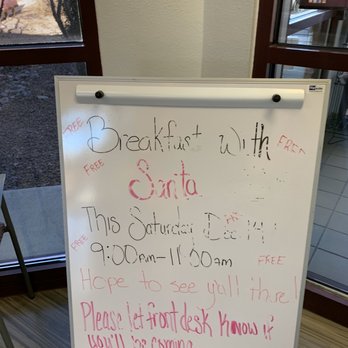 FREE
Breakfast with
FREE
FREE
Santa
This Saturday Dec 14
FREE
9:00am-11:30am
FREE
Hope to see y'all there!
Please let front desk know if
you'll be coming